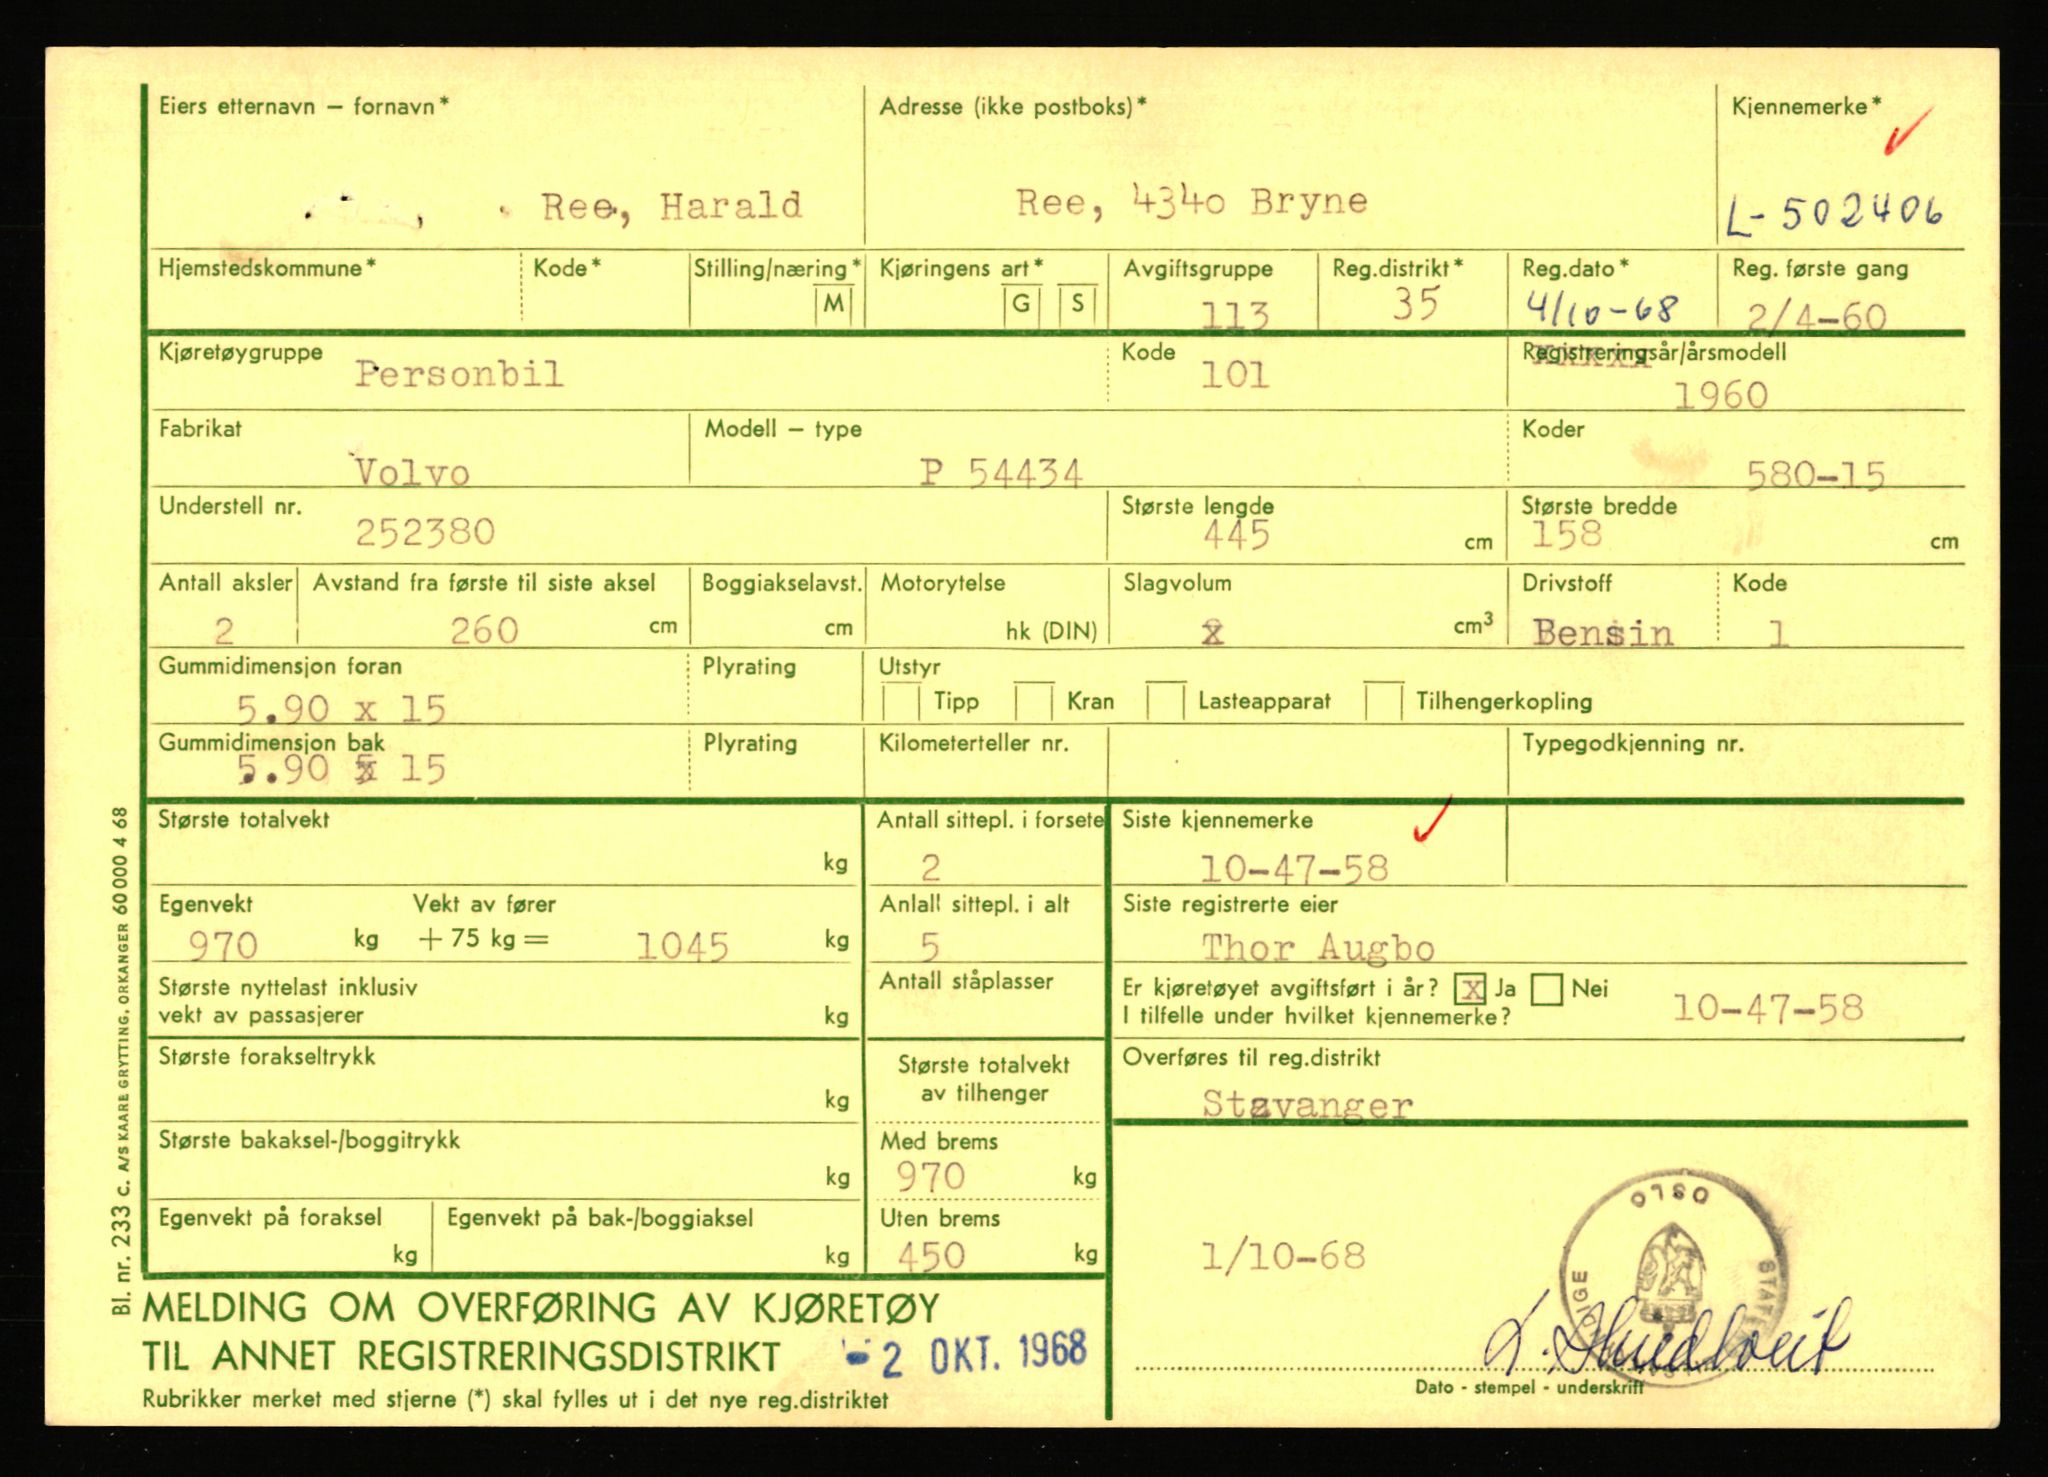 Eiers etternavn – fornavn* Adresse (ikke postboks)* Kjennemerke*
Ree, Harald Ree, 4340 Bryne L-502406
Hjemstedskommune* Kode* Stilling/næring* M Kjøringens art* G S Avgiftsgruppe Reg.distrikt* Reg.dato* Reg. første gang
113 35 4/10-68 2/4-60
Kjøretøygruppe Kode Registreringsår/årsmodell
Personbil 101 1960
Fabrikat Modell – type Koder
Volvo P 54434 580-15
Understell nr. Største lengde Største bredde
252380 445 cm 158 cm
Antall aksler Avstand fra første til siste aksel Boggiakselavst. Motorytelse Slagvolum Drivstoff Kode
2 260 cm cm hk (DIN) x cm³ Bensin 1
Gummidimensjon foran Plyrating Utstyr
5.90 x 15 Tipp Kran Lasteapparat Tilhengerkopling
Gummidimensjon bak Plyrating Kilometerteller nr. Typegodkjenning nr.
5.90 x 15
Største totalvekt Antall sittepl. i forsete Siste kjennemerke
kg 2 10-47-58
Egenvekt Vekt av fører Anlall sittepl. i alt Siste registrerte eier
970 kg + 75 kg = 1045 kg 5 Thor Augbo
Største nyttelast inklusiv Antall ståplasser Er kjøretøyet avgiftsført i år? X Ja Nei
vekt av passasjerer kg I tilfelle under hvilket kjennemerke? 10-47-58
Største forakseltrykk Største totalvekt Overføres til reg.distrikt
kg av tilhenger Stavanger
Største bakaksel-/boggitrykk Med brems
kg 970 kg
Egenvekt på foraksel Egenvekt på bak-/boggiaksel Uten brems
kg kg 450 kg 1/10-68
OSLO
MELDING OM OVERFØRING AV KJØRETØY
TIL ANNET REGISTRERINGSDISTRIKT -2 OKT. 1968
Rubrikker merket med stjerne (*) skal fylles ut i det nye reg.distriktet
Dato - stempel - underskrift
Bl. nr. 233 c. A/S KAARE GRYTTING, ORKANGER 60 000 4 68